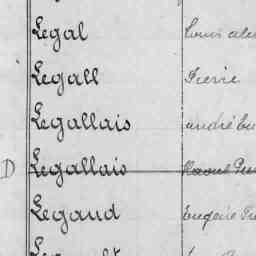 Legal Louis
Legall Pierre
Legallais André
D Legallais Raoul
Legaud Eugène